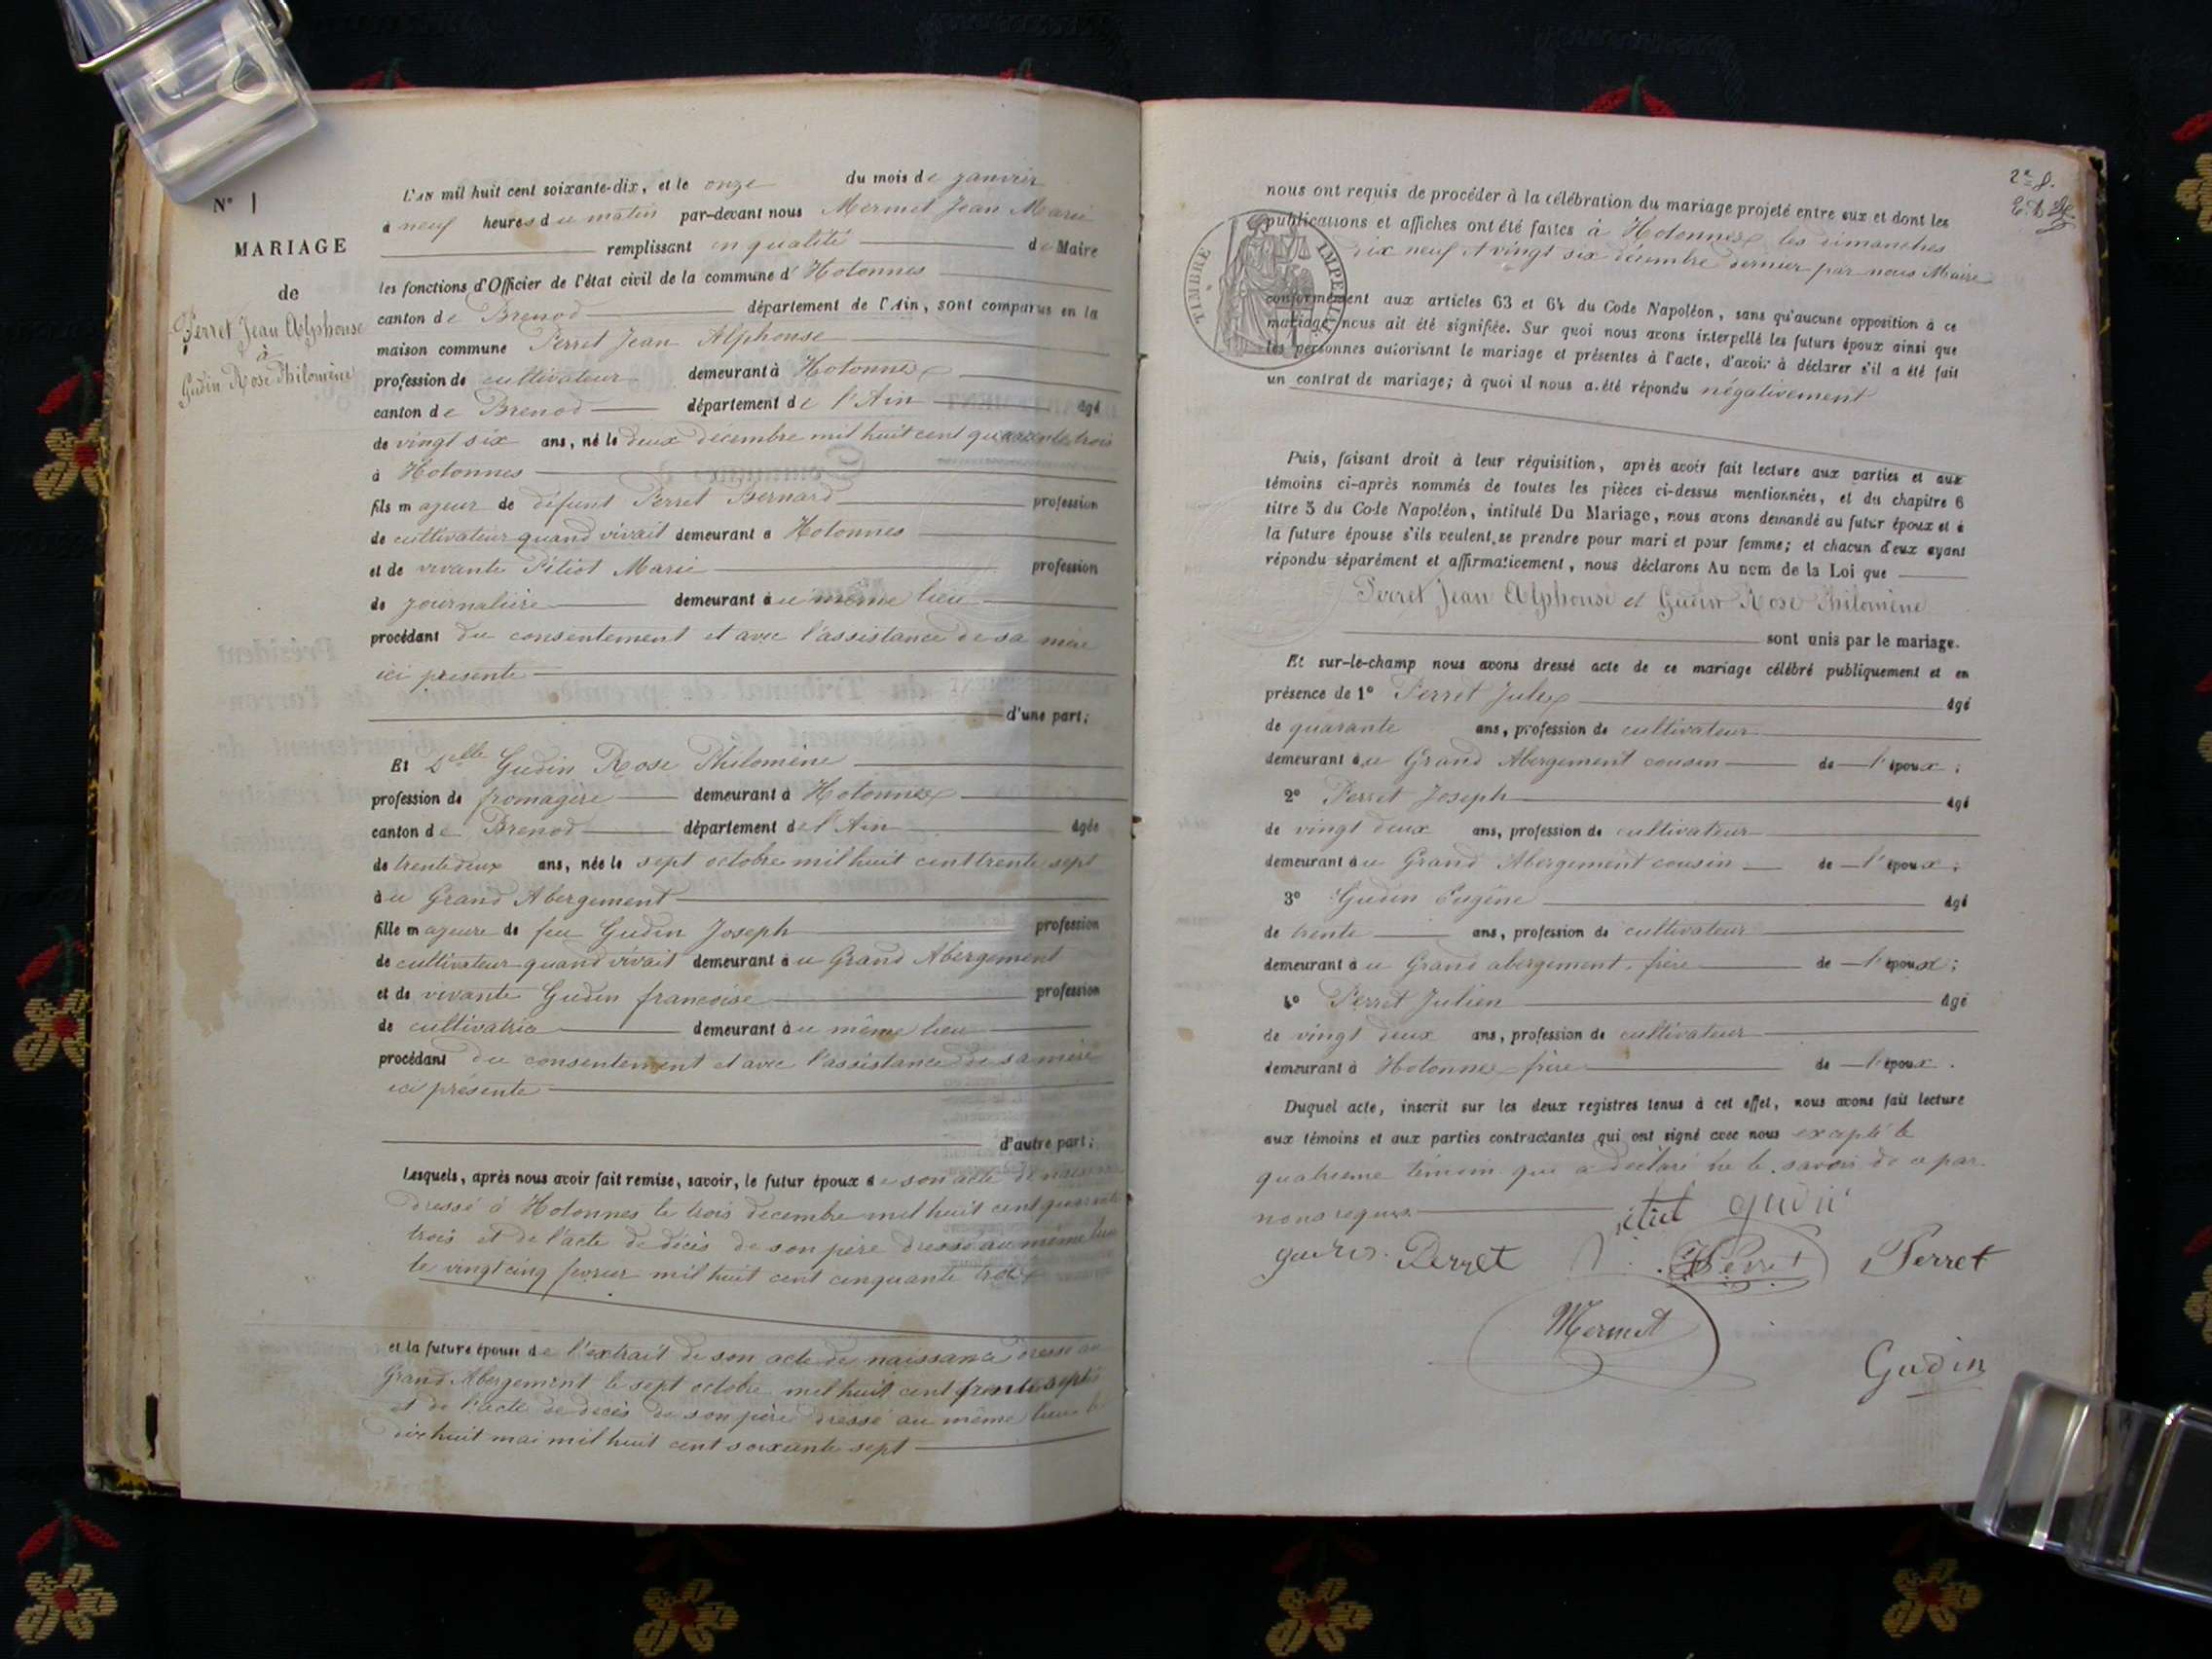 N° 1
MARIAGE
de
Perret Jean Alphonse
à
Gudin Rose Philomène
L'AN mil huit cent soixante-dix, et le onze du mois de janvier
à neuf heures du matin par-devant nous Mermet Jean Marie
remplissant en qualité de Maire
les fonctions d'Officier de l'état civil de la commune d' Hotonnes
canton de Brenod département de l'Ain, sont comparus en la
maison commune Perret Jean Alphonse
profession de cultivateur demeurant à Hotonnes
canton de Brenod département de l'Ain âgé
de vingt six ans, né le deux décembre mil huit cent quarante trois
à Hotonnes
fils majeur de défunt Perret Bernard profession
de cultivateur quand vivait demeurant à Hotonnes
et de vivante Pitiot Marie profession
de journalière demeurant au même lieu
procédant du consentement et avec l'assistance de sa mère
ici présente
d'une part;
Et Delle Gudin Rose Philomène
profession de fromagère demeurant à Hotonnes
canton de Brenod département de l'Ain âgée
de trente deux ans, née le sept octobre mil huit cent trente sept
au Grand Abergement
fille majeure de feu Gudin Joseph profession
de cultivateur quand vivait demeurant au Grand Abergement
et de vivante Gudin francoise profession
de cultivatrice demeurant au même lieu
procédant du consentement et avec l'assistance de sa mère
ici présente
d'autre part;
Lesquels, après nous avoir fait remise, savoir, le futur époux de son acte de naissance
dressé à Hotonnes le trois décembre mil huit cent quarante
trois et de l'acte de décès de son père dressé au même lieu
le vingt cinq fevrier mil huit cent cinquante trois
et la future épouse de l'extrait de son acte de naissance dressé au
Grand Abergement le sept octobre mil huit cent trente sept
et de l'acte de décès de son père dressé au même lieu le
dix huit mai mil huit cent soixante sept
2e f.
nous ont requis de procéder à la célébration du mariage projeté entre eux et dont les
publications et affiches ont été faites à Hotonnes les dimanches
dix neuf et vingt six décembre dernier par nous Maire
TIMBRE IMPERIAL
conformément aux articles 63 et 64 du Code Napoléon, sans qu'aucune opposition à ce
mariage nous ait été signifiée. Sur quoi nous avons interpellé les futurs époux ainsi que
les personnes autorisant le mariage et présentes à l'acte, d'avoir à déclarer s'il a été fait
un contrat de mariage; à quoi il nous a été répondu négativement
Puis, faisant droit à leur réquisition, après avoir fait lecture aux parties et aux
témoins ci-après nommés de toutes les pièces ci-dessus mentionnées, et du chapitre 6
titre 5 du Code Napoléon, intitulé Du Mariage, nous avons demandé au futur époux et à
la future épouse s'ils veulent se prendre pour mari et pour femme; et chacun d'eux ayant
répondu séparément et affirmativement, nous déclarons Au nom de la Loi que
Perret Jean Alphonse et Gudin Rose Philomène
sont unis par le mariage.
Et sur-le-champ nous avons dressé acte de ce mariage célébré publiquement et en
présence de 1° Perret Jules âgé
de quarante ans, profession de cultivateur
demeurant au Grand Abergement cousin de l'époux;
2° Perret Joseph âgé
de vingt deux ans, profession de cultivateur
demeurant au Grand Abergement cousin de l'époux;
3° Gudin Eugène âgé
de trente ans, profession de cultivateur
demeurant au Grand abergement, frère de l'épouse;
4° Perret Julien âgé
de vingt deux ans, profession de cultivateur
demeurant à Hotonnes frère de l'époux.
Duquel acte, inscrit sur les deux registres tenus à cet effet, nous avons fait lecture
aux témoins et aux parties contractantes qui ont signé avec nous excepté le
quatrième témoin qui a déclaré ne le savoir de ce par
nous requis.
gudin
Perret Perret Perret
Mermet
Gudin